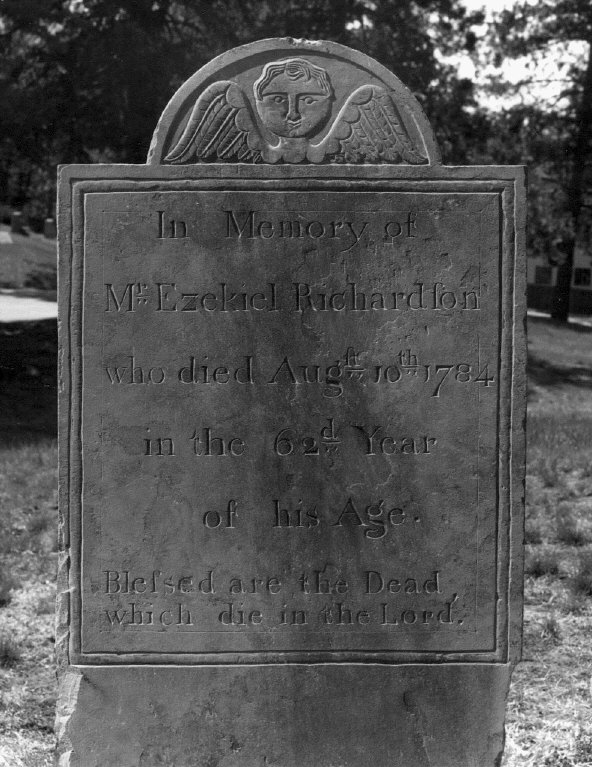 In Memory of
Mr. Ezekiel Richardſon
who died Augſt. 10th. 1784
in the 62d. Year
of his Age.
Bleſsed are the Dead,
which die in the Lord.